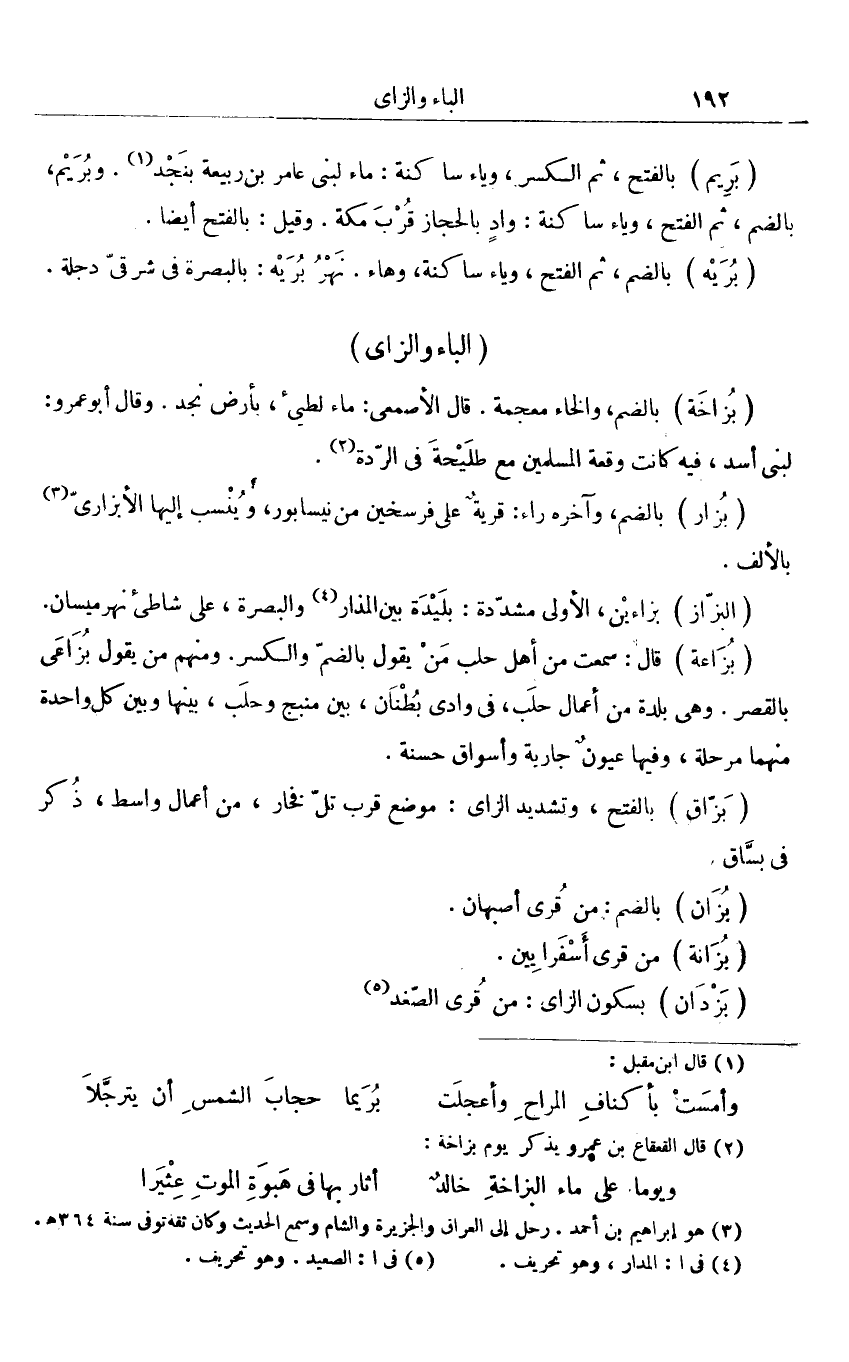 ١٩٢ الباء والزاى
( بَرِيم ) بالفتح ، ثم الكسر ، وياء ساكنة : ماء لبنى عامر بن ربيعة بنَجْد(١) . وبُرَيْم،
بالضم ، ثم الفتح ، وياء ساكنة : وادٍ بالحجاز قُرْبَ مكة . وقيل : بالفتح أيضا .
( بُرَيْه ) بالضم ، ثم الفتح ، وياء ساكنة، وهاء . نَهْرُ بُرَيْه : بالبصرة فى شرقىّ دجلة .
( الباء والزاى )
( بُزاخَة ) بالضم، والخاء معجمة . قال الأصمعى: ماء لطيىء ، بأرض نجد . وقال أبو عمرو:
لبنى أسد ، فيه كانت وقعة المسلمين مع طلَيْحةَ فى الرّدة(٢) .
( بُزار ) بالضم، وآخره راء: قريةٌ على فرسخين من نيسابور، وُيُنْسب إليها الأبزارىّ(٣)
بالألف .
( البزّاز ) بزاءيْن ، الأولى مشدّدة : بلَيْدَة بين المذار(٤) والبصرة ، على شاطئ نهر ميسان.
( بُزَاعة ) قال : سمعت من أهل حلب مَنْ يقول بالضمّ والكسر. ومنهم من يقول بُزَاعَى
بالقصر . وهى بلدة من أعمال حلَب، فى وادى بُطْنَان ، بين منبج وحلَب ، بينها وبين كل واحدة
منهما مرحلة ، وفيها عيونٌ جارية وأسواق حسنة .
( بَزّاق ) بالفتح ، وتشديد الزاى : موضع قرب تلّ فخار ، من أعمال واسط ، ذُكر
فى بسَّاق .
( بُزَان ) بالضم : من قُرى أصبهان .
( بُزَانة ) من قرى أَسْفَرايِين .
( بَزْدَان ) بسكون الزاى : من قُرى الصّغد(٥)
(١) قال ابن مقبل :
وأمسَتْ بأكنافِ المراحِ وأعجلَت بُرَيما حجابَ الشمسِ أن يترجَّلاَ
(٢) قال القعقاع بن عمرو يذكر يوم بزاخة :
ويوما على ماء البزاخةِ خالدٌ أثار بها فى هَبوَةِ الموتِ عِثْيَرا
(٣) هو إبراهيم بن أحمد . رحل إلى العراق والجزيرة والشام وسمع الحديث وكان ثقة توفى سنة ٣٦٤هـ .
(٤) فى ا : المدار ، وهو تحريف . (٥) فى ا : الصعيد . وهو تحريف .